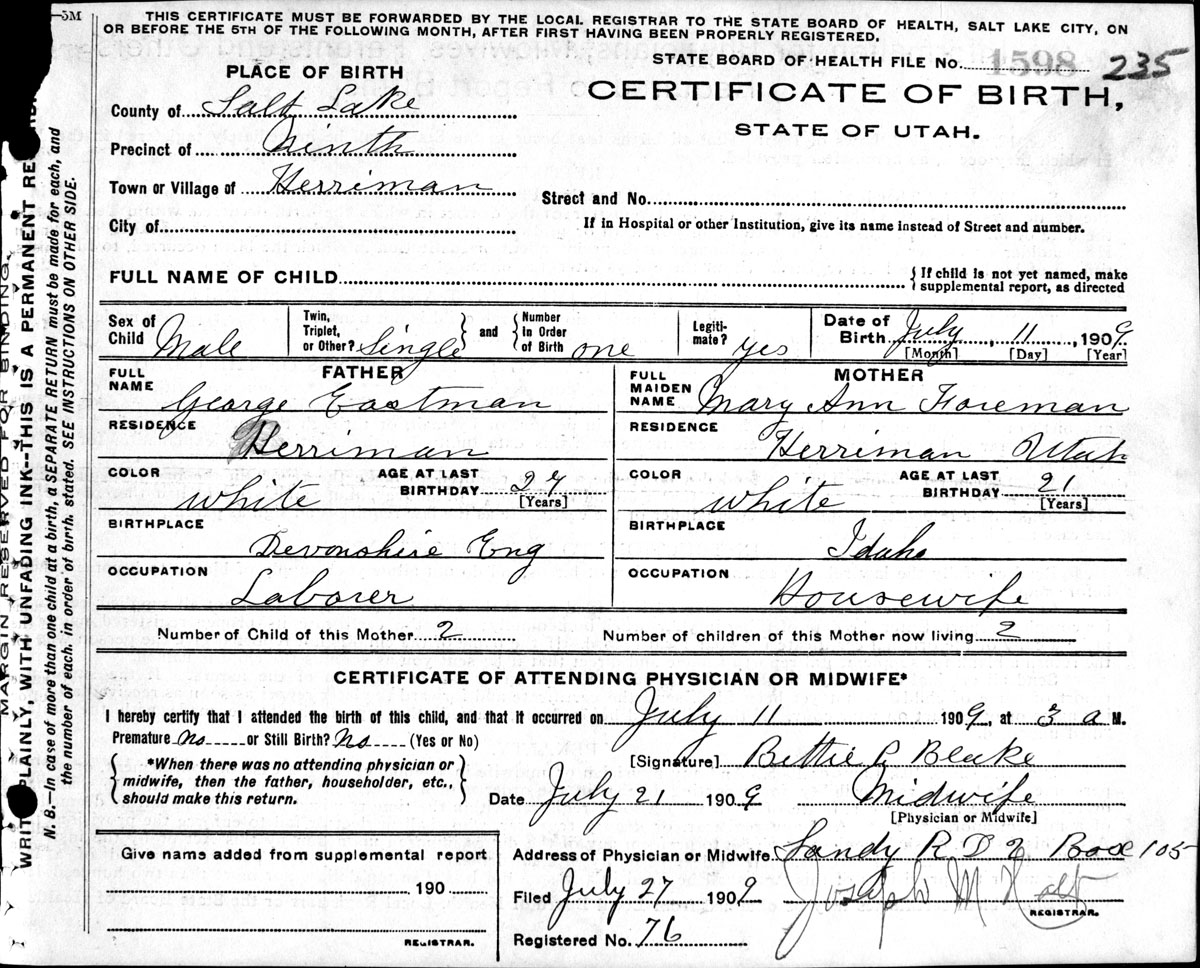 —5M
THIS CERTIFICATE MUST BE FORWARDED BY THE LOCAL REGISTRAR TO THE STATE BOARD OF HEALTH, SALT LAKE CITY, ON
OR BEFORE THE 5TH OF THE FOLLOWING MONTH, AFTER FIRST HAVING BEEN PROPERLY REGISTERED.
STATE BOARD OF HEALTH FILE No. 1598 235
CERTIFICATE OF BIRTH,
STATE OF UTAH.
PLACE OF BIRTH
County of Salt Lake
Precinct of Ninth
Town or Village of Herriman
Street and No.
City of
If in Hospital or other Institution, give its name instead of Street and number.
FULL NAME OF CHILD
{If child is not yet named, make
supplemental report, as directed
Sex of Child Male
Twin, Triplet, or Other? Single
and
Number In Order of Birth one
Legiti-mate? yes
Date of Birth July, 11, 1909
[Month] [Day] [Year]
FATHER
FULL NAME
George Eastman
RESIDENCE
Herriman
COLOR
white
AGE AT LAST BIRTHDAY 27
[Years]
BIRTHPLACE
Devonshire Eng
OCCUPATION
Laborer
MOTHER
FULL MAIDEN NAME
Mary Ann Foreman
RESIDENCE
Herriman Utah
COLOR
white
AGE AT LAST BIRTHDAY 21
[Years]
BIRTHPLACE
Idaho
OCCUPATION
Housewife
Number of Child of this Mother 2
Number of children of this Mother now living 2
CERTIFICATE OF ATTENDING PHYSICIAN OR MIDWIFE*
I hereby certify that I attended the birth of this child, and that it occurred on July 11 1909, at 3 a M.
Premature No or Still Birth? No (Yes or No)
*When there was no attending physician or
midwife, then the father, householder, etc.,
should make this return.
[Signature] Bettie Blake
Date July 21 1909
Midwife
[Physician or Midwife]
Give name added from supplemental report
190
REGISTRAR.
Address of Physician or Midwife Sandy R D 2 Box 105
Filed July 27 1909
Joseph M Holt
REGISTRAR.
Registered No. 76
MARGIN RESERVED FOR BINDING.
PLAINLY, WITH UNFADING INK--THIS IS A PERMANENT
N. B.—In case of more than one child at a birth, a SEPARATE RETURN must be made for each, and
the number of each, in order of birth, stated. SEE INSTRUCTIONS ON OTHER SIDE.